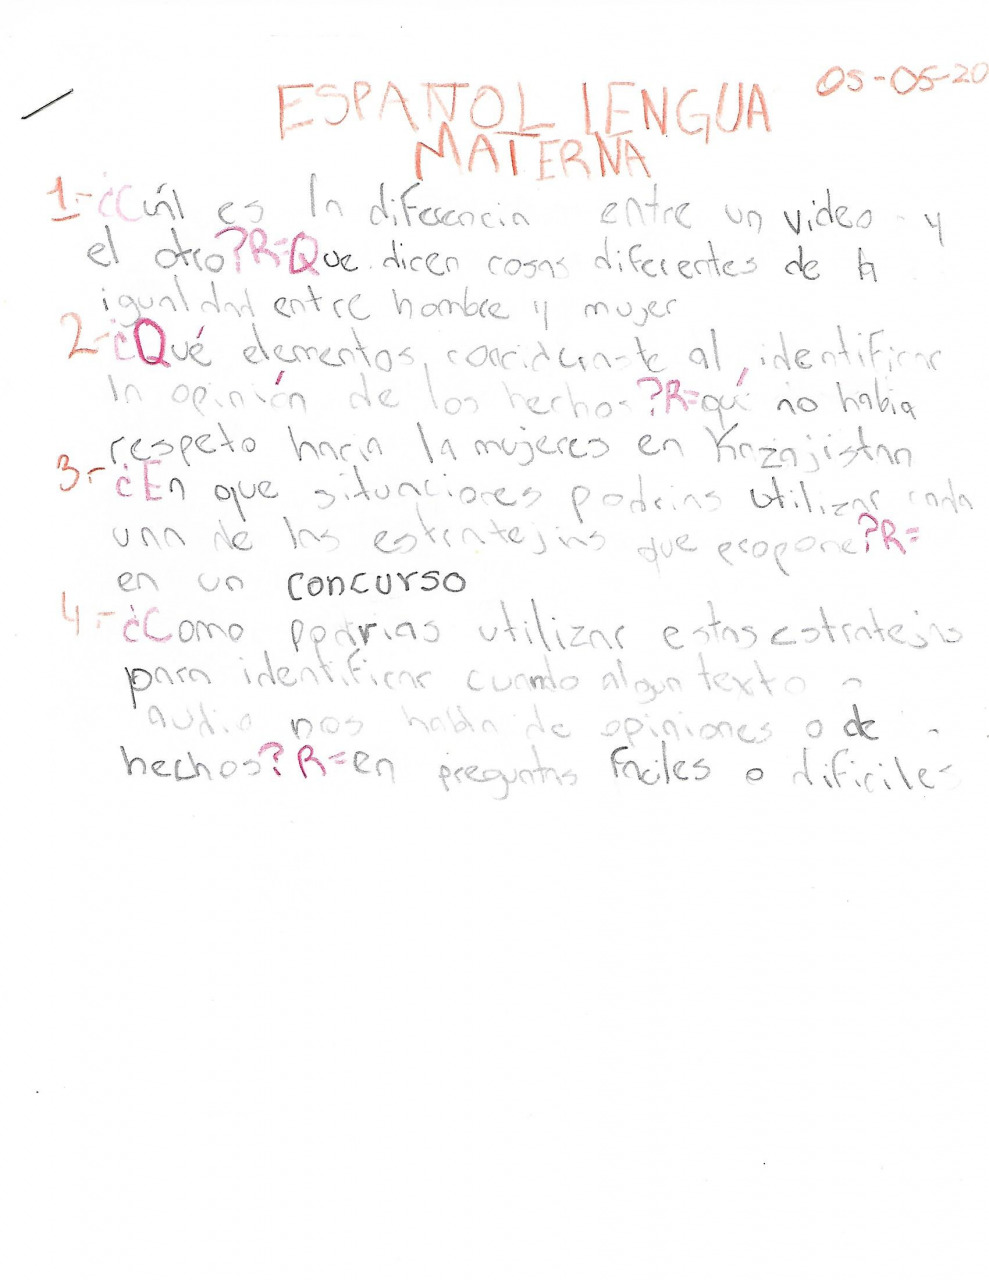 05-05-20
ESPAÑOL LENGUA
MATERNA
1.- ¿Cuál es la diferencia entre un video y
el otro? R=Que dicen cosas diferentes de la
igualdad entre hombre y mujer
2-¿Qué elementos consideraste al identificar
la opinión de los hechos? R=qué no habia
respeto hacia la mujeres en Kazajistan
3.- ¿En que situaciones podrias utilizar cada
una de las estratejias que propone? R=
en un concurso
4.- ¿Como podrias utilizar estas estratejias
para identificar cuando algun texto
audio nos habla de opiniones o de
hechos? R=en preguntas faciles o dificiles